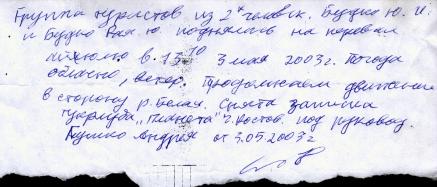 Группа туристов из 2х человек. Будко Ю. И.
и Будко поднялись на перевал
в 13 10 3 мая 2003 г. Погода
облачно, ветер. Продолжаем движение
в сторону р. Белая. Снята записка
турклуба "Планета" г. Ростов. под руковод.
Андрея от 3.05.2003 г